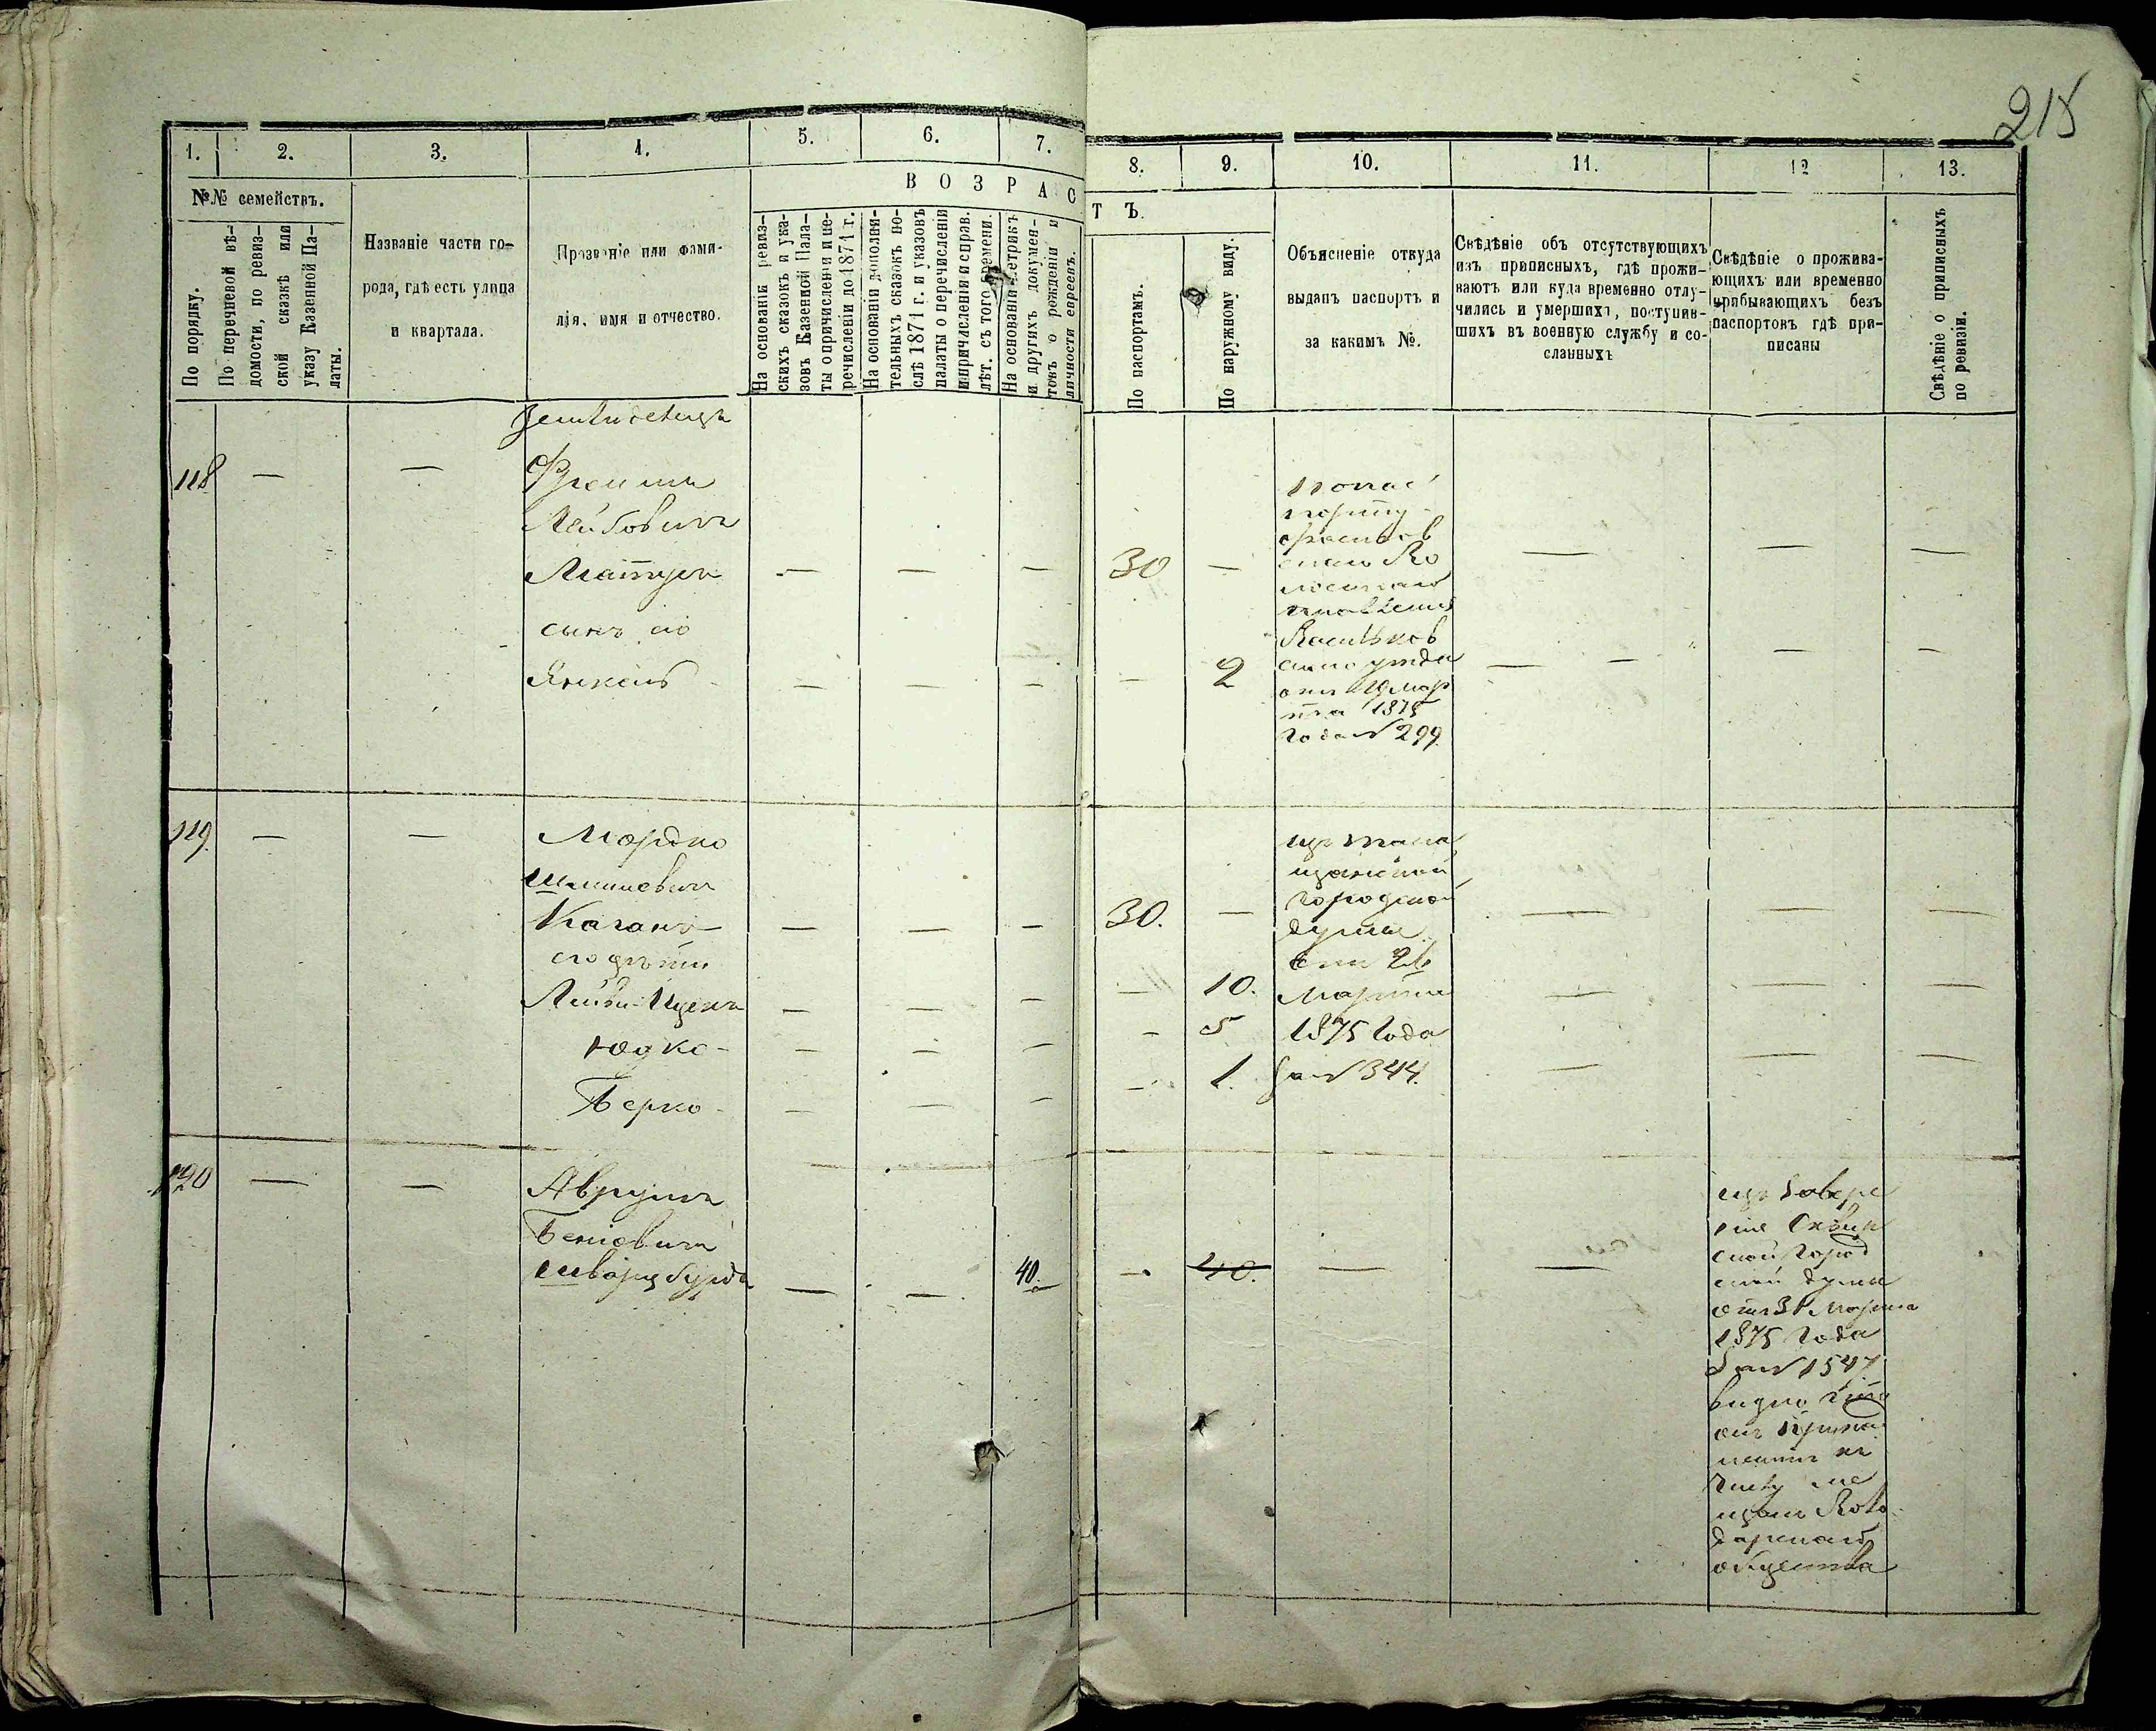 215
1. 2. 3. 4. 5. 6. 7. 8. 9. 10. 11. 12 13.
№№ семействъ.
По порядку.
По перечневой вѣ-
домости, по ревиз-
ской сказкѣ или
указу Казенной Па-
латы.
Названіе части го-
рода, гдѣ есть улица
и квартала.
Прозваніе или фами-
лія, имя и отчество.
ВОЗРАСТЪ.
На основаніи ревиз-
скихъ сказокъ и ука-
зовъ Казенной Пала-
ты о причисленіи и пе-
речисленіи до 1871 г.
На основаніи дополни-
тельныхъ сказокъ по-
слѣ 1871 г. и указовъ
палаты о перечисленіи
и причисленіи и справ.
лѣт. съ того времени.
На основаніи метрикъ
и другихъ докумен-
товъ о рожденіи и
личности евреевъ.
По паспортамъ.
По наружному виду.
Объясненіе откуда
выданъ паспортъ и
за какимъ №.
Свѣдѣніе объ отсутствующихъ
изъ приписныхъ, гдѣ прожи-
ваютъ или куда временно отлу-
чились и умершихъ, поступив-
шихъ въ военную службу и со-
сланныхъ
Свѣдѣніе о прожива-
ющихъ или временно
прибывающихъ безъ
паспортовъ гдѣ при-
писаны
Свѣдѣніе о приписныхъ
по ревизіи.
118 — —
Лейбовичъ
— — — 30 — — — —
сынъ его
Янкель — — — — 2 — — — —
Васильков
скаго уѣзда
отъ 19 мар
та 1875
года № 299
119. — — Мордко
Шмилевичъ
Каганъ — — — 30. — — — —
его дѣти
Лейби-Ицекъ — — — — 10. — — —
Юдко — — — — 5
Берко — — — — 1. — — —
городской
думы
отъ 26
Марта
1875 года
за № 344.
120 — — Аврумъ
Беніовичъ
Шварцбурдъ — — 40. — 40. — —
Сквир
ской город
ской думы
отъ 31 Марта
1875 года
за № 1547
видно что
онъ принад
лежитъ къ
числу мѣ
щанъ Воло
дарскаго
общества